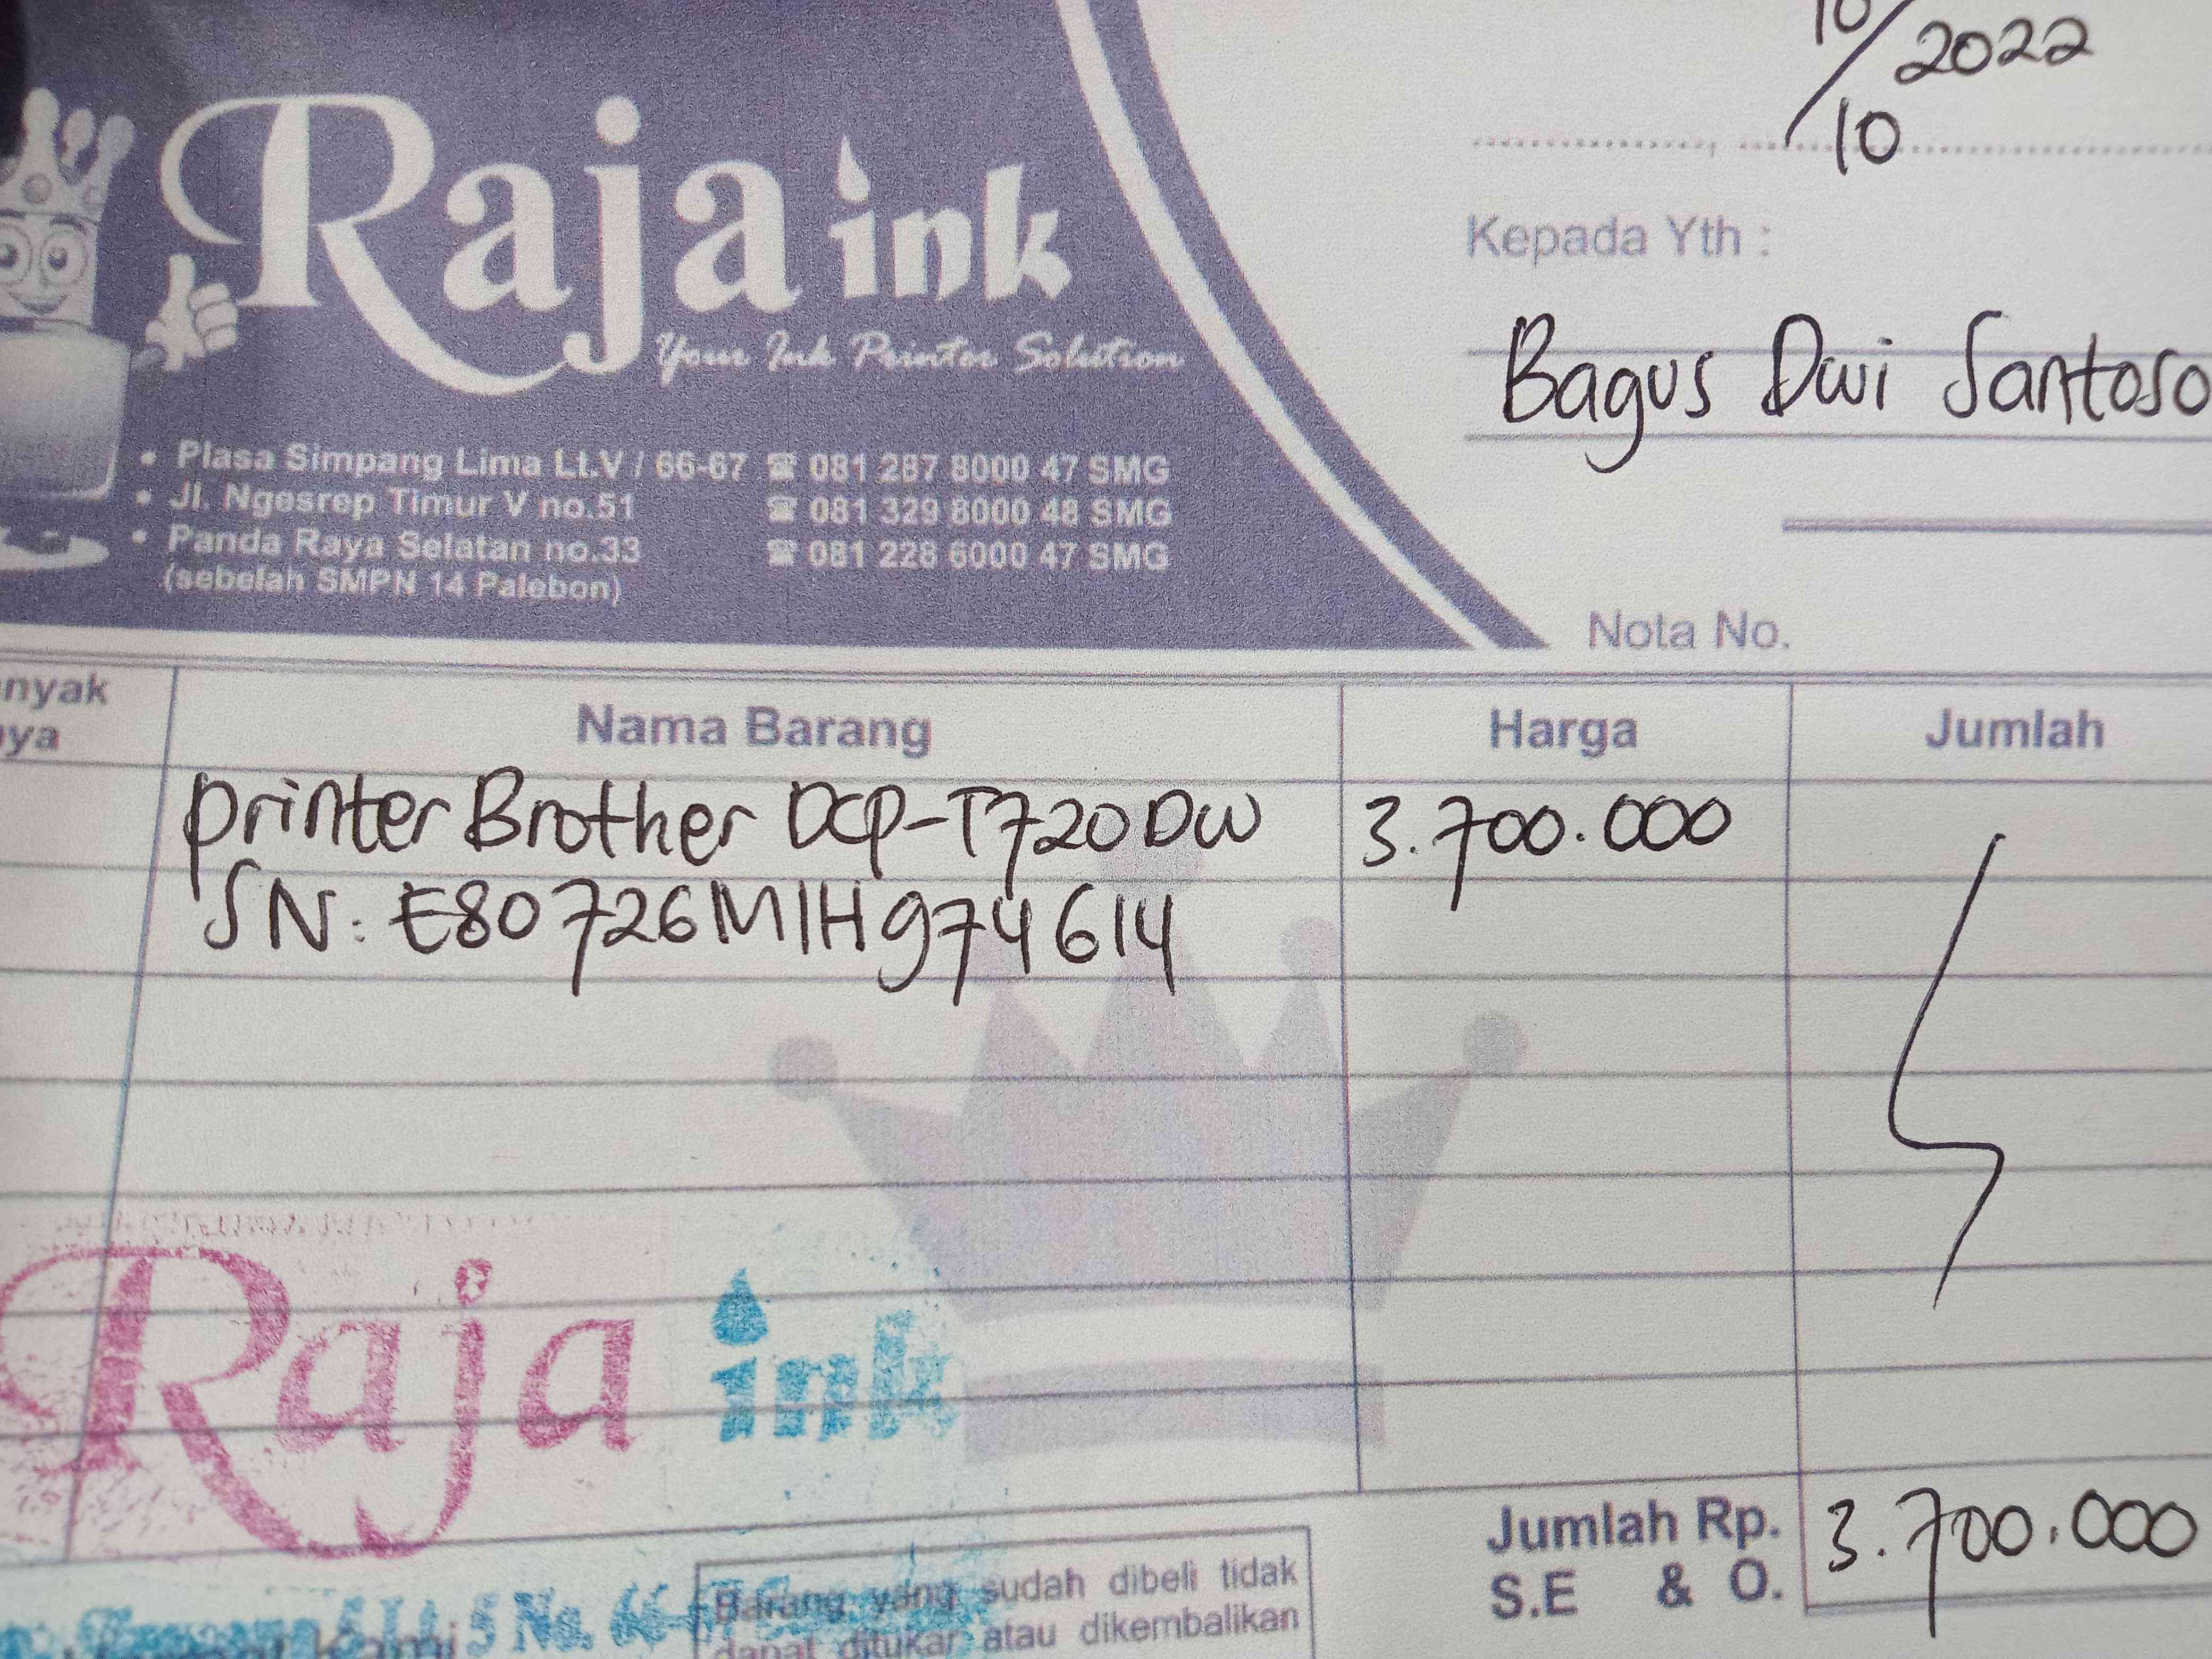 10/10 2022
Raja ink
Your Ink Printer Solution
• Plasa Simpang Lima Lt.V / 66-67 ☎ 081 287 8000 47 SMG
• Jl. Ngesrep Timur V no.51 ☎ 081 329 8000 48 SMG
• Panda Raya Selatan no.33 ☎ 081 228 6000 47 SMG
(sebelah SMPN 14 Palebon)
Kepada Yth :
Bagus Dwi Santoso
Nota No.
nyak
ya
Nama Barang Harga Jumlah
Printer Brother DCP-T720DW 3.700.000
SN: E80726M1H974614
Raja ink
Jumlah Rp. 3.700.000
S.E & O.
Lt. 5 No. 66-67
Barang yang sudah dibeli tidak
dapat ditukar atau dikembalikan
Kami